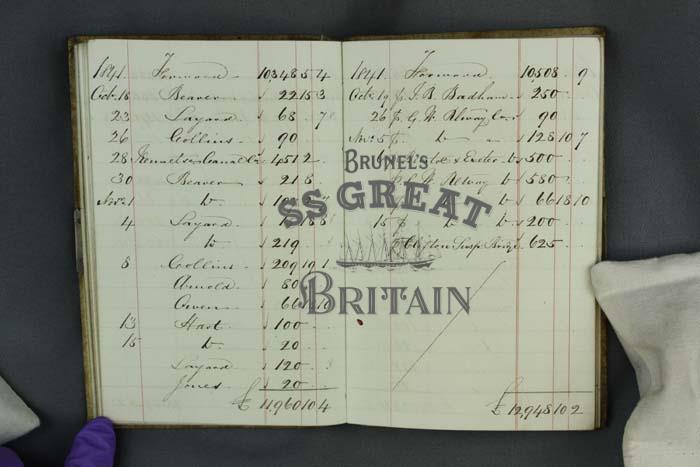 1841 Forward 10,348 5 4
Octr. 18 Beaver 22 15 3
23 Layard 68 . 7
26 Collins 90
28 Kennet & Avon Canal Co 45 12
30 Beaver 21 8
Novr. 1 Do
4 Layard
Do 219
8 Collins 209 19 1
Arnold 80
Owen 66 18 10
13 Hart 100
15 Do 20
Layard 120
Jones 20
£ 11,960 10 4
1841 Forward 10,508 . 9
Octr. 19 J. B. Badham 250
26 G. W. Alway & Co 90
Novr. 5 Do 128 10 7
& Exeter Do 500
Alway 580
Do 66 18 10
15 Do Do 200
Clifton Susp Bridge 625
£ 12,948 10 2
BRUNEL'S
SS GREAT
BRITAIN